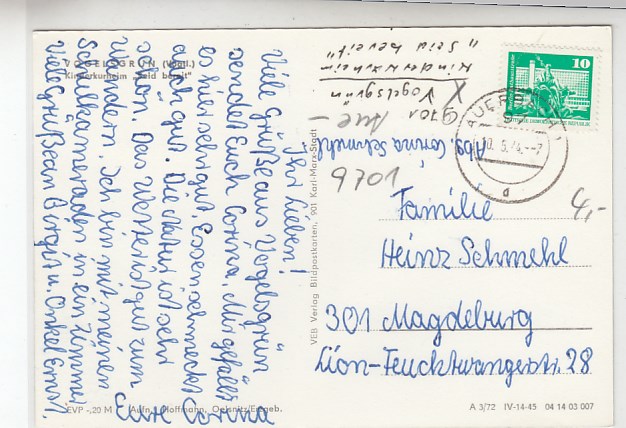 VOGELSGRÜN (Vogtl.)
Kinderkurheim „Seid bereit"
Ihr Lieben!
Viele Grüße aus Vogelsgrün
sendet Euch Corina. Mir gefällt
es hier sehr gut. Essen schmeckt
auch gut. Die Natur ist sehr
schön. Das Wetter ist gut zum
wandern. Ich bin mit meinen
Schulkameraden in ein Zimmer
Viele Grüße an Birgit u. Onkel Ernst.
Eure Corina
EVP -,20 M Aufn.: Hoffmann, Oelsnitz/Erzgeb.
VEB Verlag Bildpostkarten, 901 Karl-Marx-Stadt
Abs. Corina Schmehl
9701 Aue -
Vogelsgrün
Kinderkurheim
„Seid bereit"
9701
10
AUERBACH
9
10.5.74.-7
a
4,-
Familie
Heinz Schmehl
301 Magdeburg
Lion-Feuchtwangerstr. 28
A 3/72 IV-14-45 04 14 03 007